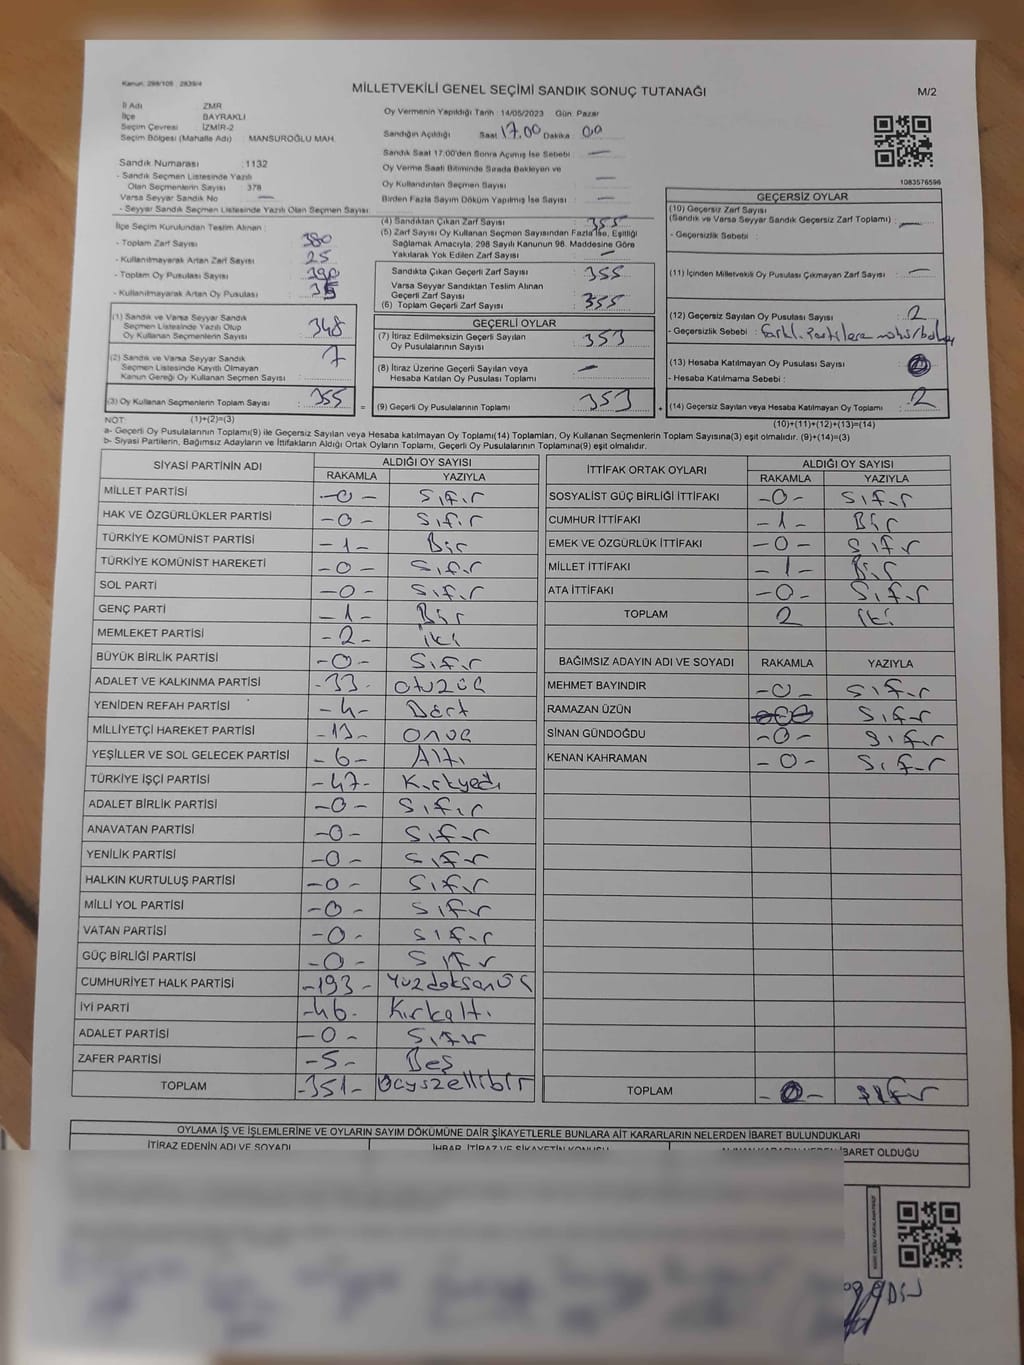 Kanun: 298/105 2839/4
MİLLETVEKİLİ GENEL SEÇİMİ SANDIK SONUÇ TUTANAĞI
M/2
İl Adı ZMR
İlçe BAYRAKLI
Seçim Çevresi İZMİR-2
Seçim Bölgesi (Mahalle Adı) MANSUROĞLU MAH.
Oy Vermenin Yapıldığı Tarih : 14/05/2023 Gün: Pazar
Sandığın Açıldığı Saat 17.00 Dakika 00
Sandık Saat 17:00'den Sonra Açılmış İse Sebebi : —
Oy Verme Saati Bitiminde Sırada Bekleyen ve
Oy Kullandırılan Seçmen Sayısı : —
Birden Fazla Sayım Döküm Yapılmış İse Sayısı : —
1083576596
Sandık Numarası : 1132
- Sandık Seçmen Listesinde Yazılı
Olan Seçmenlerin Sayısı : 378
Varsa Seyyar Sandık No —
- Seyyar Sandık Seçmen Listesinde Yazılı Olan Seçmen Sayısı
İlçe Seçim Kurulundan Teslim Alınan :
- Toplam Zarf Sayısı : 380
- Kullanılmayarak Artan Zarf Sayısı : 25
- Toplam Oy Pusulası Sayısı
- Kullanılmayarak Artan Oy Pusulası
(1) Sandık ve Varsa Seyyar Sandık
Seçmen Listesinde Yazılı Olup
Oy Kullanan Seçmenlerin Sayısı : 348
(2) Sandık ve Varsa Seyyar Sandık
Seçmen Listesinde Kayıtlı Olmayan
Kanun Gereği Oy Kullanan Seçmen Sayısı : 7
(3) Oy Kullanan Seçmenlerin Toplam Sayısı : 355
(4) Sandıktan Çıkan Zarf Sayısı : 355
(5) Zarf Sayısı Oy Kullanan Seçmen Sayısından Fazla İse, Eşitliği
Sağlamak Amacıyla, 298 Sayılı Kanunun 98. Maddesine Göre
Yakılarak Yok Edilen Zarf Sayısı : —
Sandıkta Çıkan Geçerli Zarf Sayısı : 355
Varsa Seyyar Sandıktan Teslim Alınan
Geçerli Zarf Sayısı
(6) Toplam Geçerli Zarf Sayısı : 355
GEÇERLİ OYLAR
(7) İtiraz Edilmeksizin Geçerli Sayılan
Oy Pusulalarının Sayısı : 353
(8) İtiraz Üzerine Geçerli Sayılan veya
Hesaba Katılan Oy Pusulası Toplamı : —
= (9) Geçerli Oy Pusulalarının Toplamı : 353 +
GEÇERSİZ OYLAR
(10) Geçersiz Zarf Sayısı
(Sandık ve Varsa Seyyar Sandık Geçersiz Zarf Toplamı) : —
- Geçersizlik Sebebi :
(11) İçinden Milletvekili Oy Pusulası Çıkmayan Zarf Sayısı : —
(12) Geçersiz Sayılan Oy Pusulası Sayısı : 2
- Geçersizlik Sebebi : farklı partilere mühür
(13) Hesaba Katılmayan Oy Pusulası Sayısı
- Hesaba Katılmama Sebebi :
(14) Geçersiz Sayılan veya Hesaba Katılmayan Oy Toplamı : 2
NOT: (1)+(2)=(3)
(10)+(11)+(12)+(13)=(14)
a- Geçerli Oy Pusulalarının Toplamı(9) ile Geçersiz Sayılan veya Hesaba katılmayan Oy Toplamı(14) Toplamları, Oy Kullanan Seçmenlerin Toplam Sayısına(3) eşit olmalıdır. (9)+(14)=(3)
b- Siyasi Partilerin, Bağımsız Adayların ve İttifakların Aldığı Ortak Oyların Toplamı, Geçerli Oy Pusulalarının Toplamına(9) eşit olmalıdır.
SİYASİ PARTİNİN ADI ALDIĞI OY SAYISI
RAKAMLA YAZIYLA
MİLLET PARTİSİ -0- Sıfır
HAK VE ÖZGÜRLÜKLER PARTİSİ -0- Sıfır
TÜRKİYE KOMÜNİST PARTİSİ -1- Bir
TÜRKİYE KOMÜNİST HAREKETİ -0- Sıfır
SOL PARTİ -0- Sıfır
GENÇ PARTİ -1- Bir
MEMLEKET PARTİSİ -2- iki
BÜYÜK BİRLİK PARTİSİ -0- Sıfır
ADALET VE KALKINMA PARTİSİ -33- otuzüç
YENİDEN REFAH PARTİSİ -4- Dört
MİLLİYETÇİ HAREKET PARTİSİ -13- onüç
YEŞİLLER VE SOL GELECEK PARTİSİ -6- Altı
TÜRKİYE İŞÇİ PARTİSİ -47- Kırkyedi
ADALET BİRLİK PARTİSİ -0- Sıfır
ANAVATAN PARTİSİ -0- Sıfır
YENİLİK PARTİSİ -0- Sıfır
HALKIN KURTULUŞ PARTİSİ -0- Sıfır
MİLLİ YOL PARTİSİ -0- Sıfır
VATAN PARTİSİ -0- Sıfır
GÜÇ BİRLİĞİ PARTİSİ -0- Sıfır
CUMHURİYET HALK PARTİSİ -193- Yüzdoksanüç
İYİ PARTİ -46- Kırkaltı
ADALET PARTİSİ -0- Sıfır
ZAFER PARTİSİ -5- Beş
TOPLAM -351- Üçyüzellibir
İTTİFAK ORTAK OYLARI ALDIĞI OY SAYISI
RAKAMLA YAZIYLA
SOSYALİST GÜÇ BİRLİĞİ İTTİFAKI -0- Sıfır
CUMHUR İTTİFAKI -1- Bir
EMEK VE ÖZGÜRLÜK İTTİFAKI -0- Sıfır
MİLLET İTTİFAKI -1- Bir
ATA İTTİFAKI -0- Sıfır
TOPLAM 2 iki
BAĞIMSIZ ADAYIN ADI VE SOYADI RAKAMLA YAZIYLA
MEHMET BAYINDIR -0- Sıfır
RAMAZAN ÜZÜN Sıfır
SİNAN GÜNDOĞDU -0- Sıfır
KENAN KAHRAMAN -0- Sıfır
TOPLAM -0- sıfır
OYLAMA İŞ VE İŞLEMLERİNE VE OYLARIN SAYIM DÖKÜMÜNE DAİR ŞİKAYETLERLE BUNLARA AİT KARARLARIN NELERDEN İBARET BULUNDUKLARI
İTİRAZ EDENİN ADI VE SOYADI İHBAR, İTİRAZ VE ŞİKAYETİN KONUSU ALINAN KARARIN NEDEN İBARET OLDUĞU